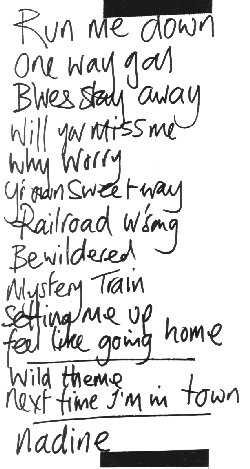 Run me down
One way gal
Blues stay away
Will you miss me
Why Worry
Yr own sweet way
Railroad W'song
Bewildered
Mystery Train
Setting me up
feel like going home
Wild theme
Next time I'm in town
Nadine